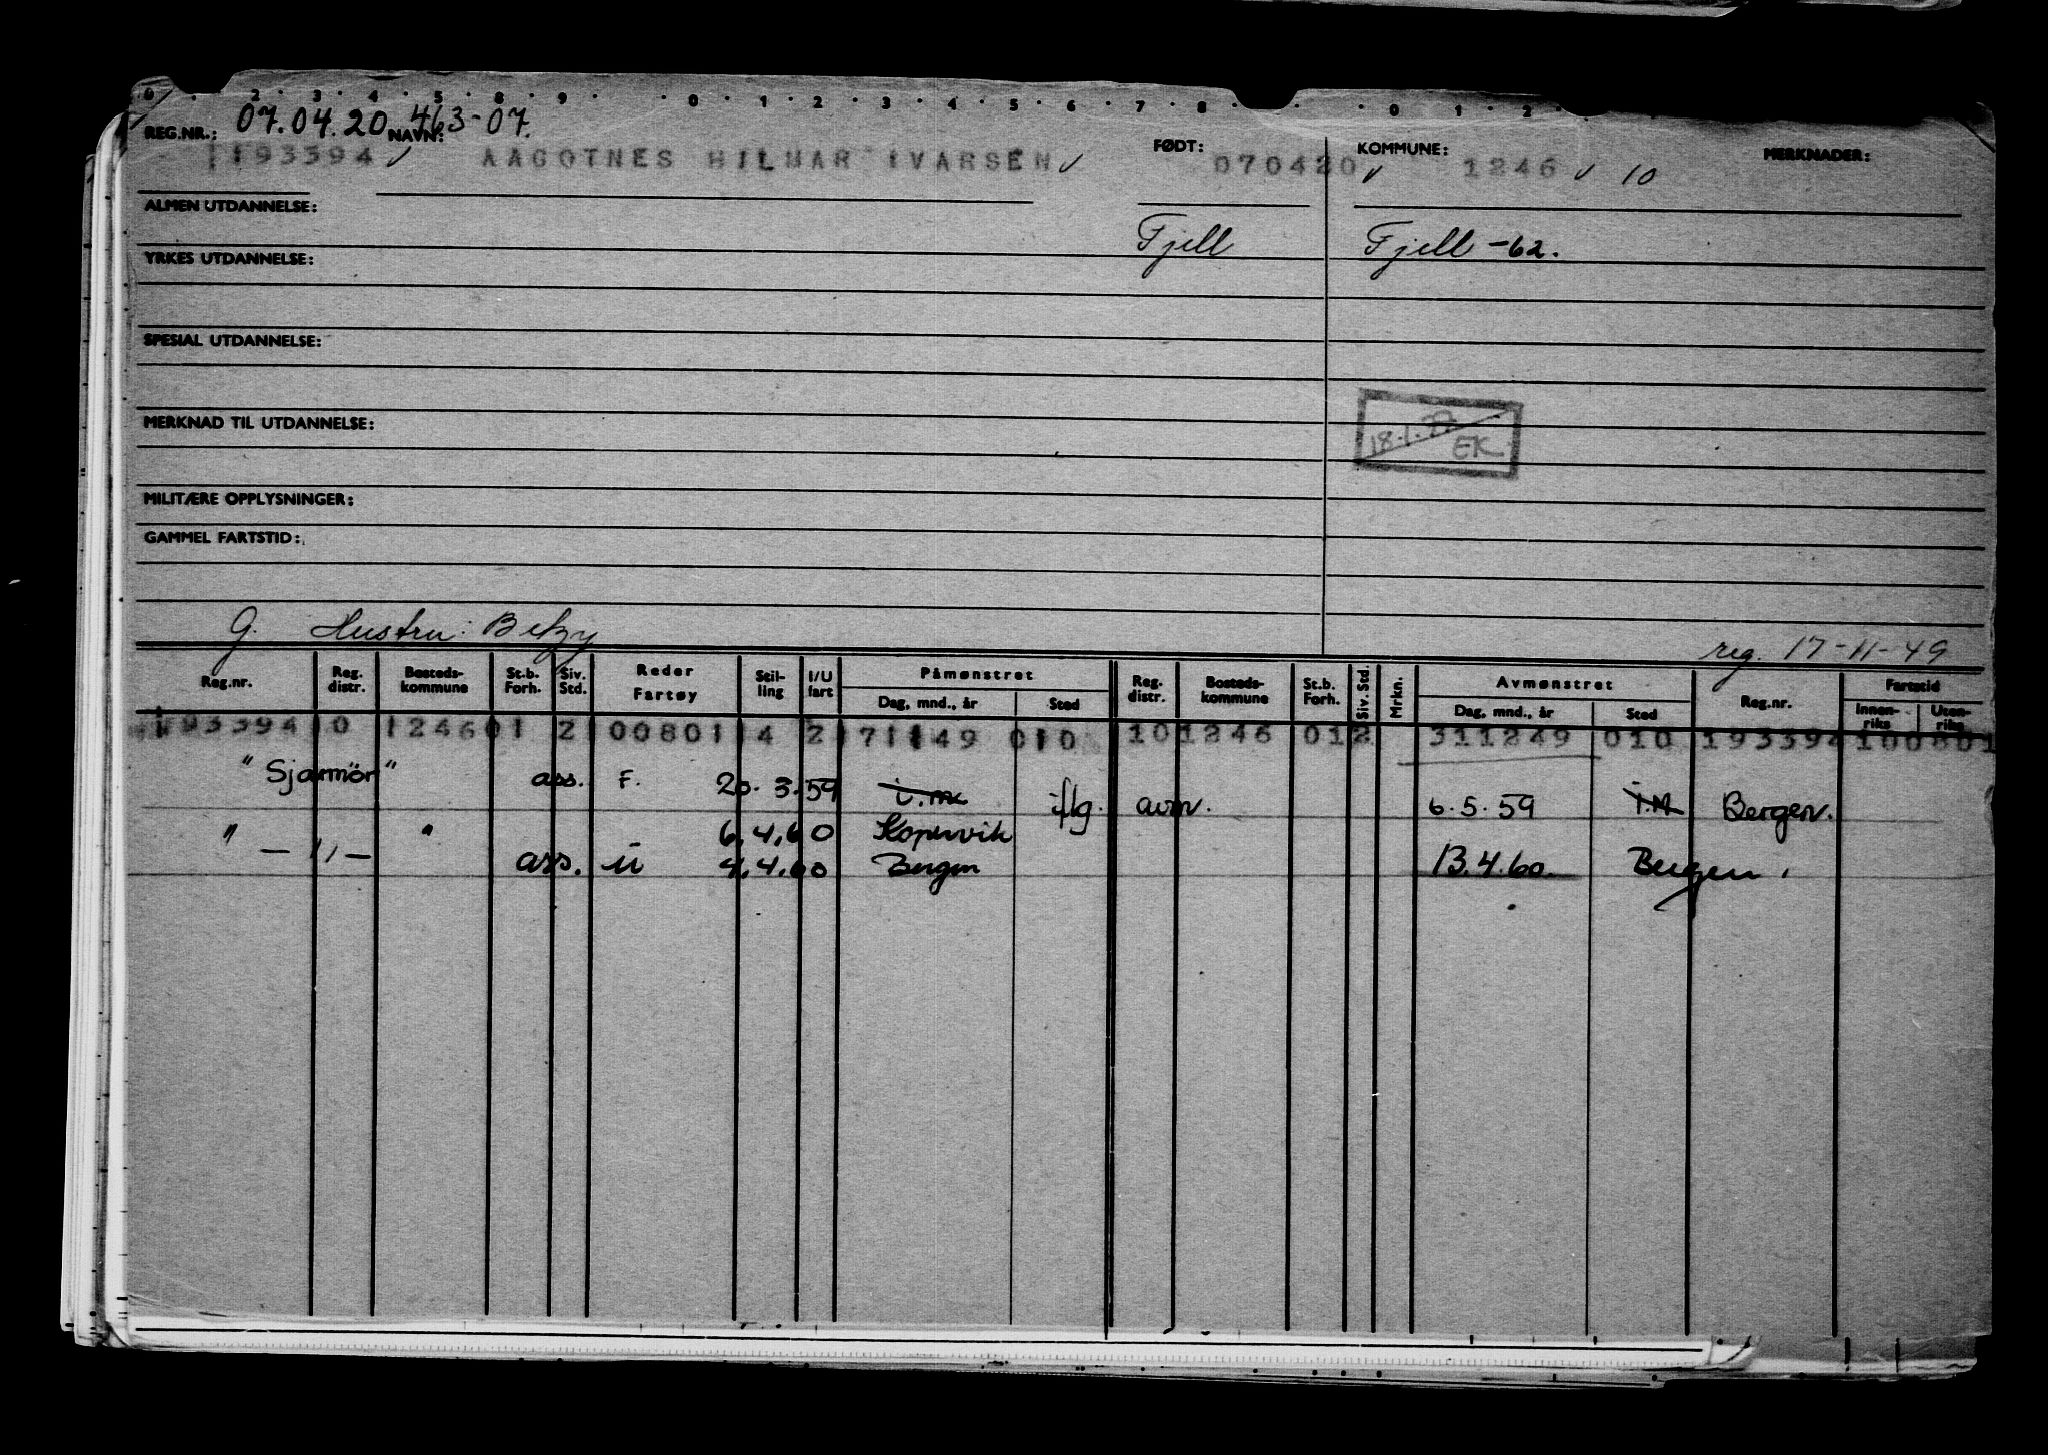 0 . . 2 . 3 . 4 . 5 . 8 . 9 . . 0 . 1 . 2 . 3 . 4 . 5 . 6 . 7 . 8 . . . 0 . 1 . 2 .
07.04.20 463-07.
REG.NR.: NAVN: FØDT: KOMMUNE: MERKNADER:
193394 AAGOTNES HILMAR IVARSEN 070420 1246 10
ALMEN UTDANNELSE:
Fjell Fjell -62.
YRKES UTDANNELSE:
SPESIAL UTDANNELSE:
MERKNAD TIL UTDANNELSE:
18.1.77 EK
MILITÆRE OPPLYSNINGER:
GAMMEL FARTSTID:
G. Hustru: Betzy
reg. 17-11-49
Reg.nr. Reg. distr. Bosteds-kommune St.b. Forh. Siv. Std. Reder Fartøy Stil-ling I/U fart Påmønstret Dag, mnd., år Sted Reg. distr. Bosteds-kommune St.b. Forh. Siv. Std. Mrkn. Avmønstret Dag, mnd., år Sted Reg.nr. Fartstid Innen-riks Uten-riks
193394 10 1246 01 2 00801 4 2 171149 010 10 1246 01 2 311249 010 193394 100801
"Sjarmör" ass. F. 20.3.59 i.m. iflg. avm. 6.5.59 i.M Bergen.
" " 6.4.60 Kopervik
— 11 — ass. u 4.4.60 Bergen 13.4.60. Bergen.